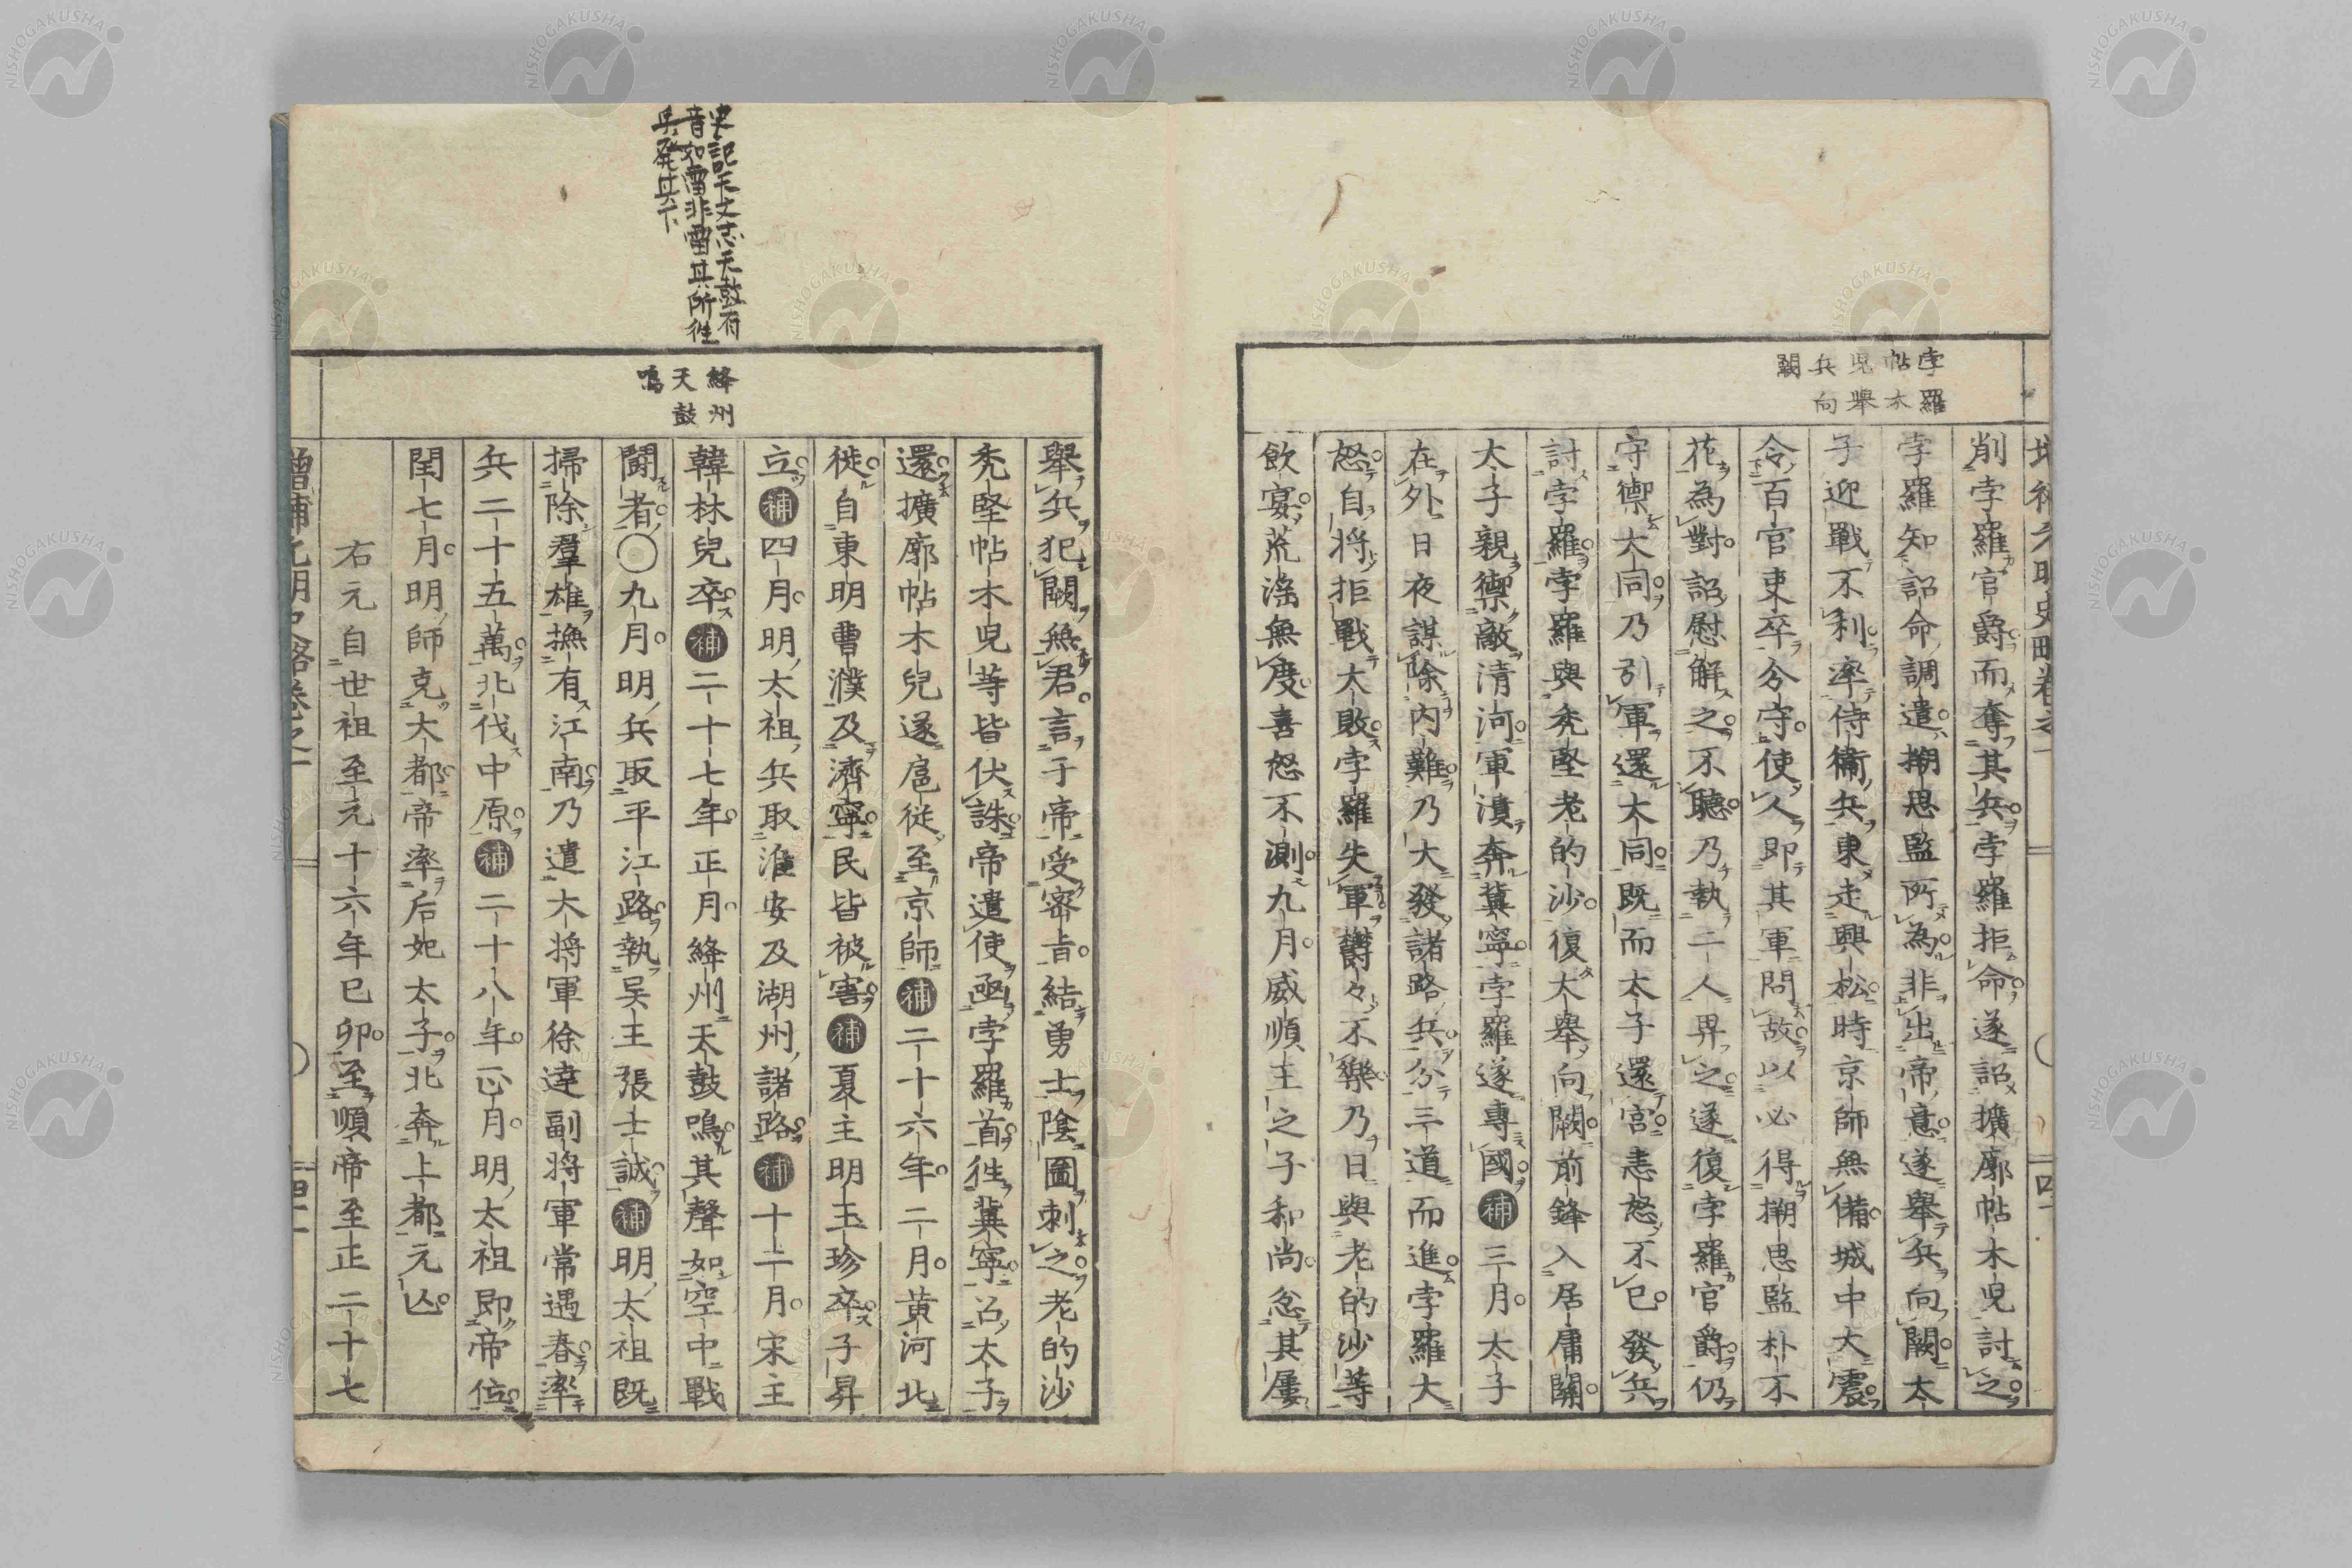 孛羅
帖木
児舉
兵向
闕
削孛羅官爵而奪其兵孛羅拒命遂詔擴廓帖木児討之
孛羅知詔命調遣搠思監所為非出帝意遂舉兵向闕太
子迎戰不利率侍衞兵東走興松時京師無備城中大震
令百官吏卒分守使人即其軍問故以必得搠思監朴不
花為對詔慰解之不聽乃執二人畀之遂復孛羅官爵仍
守禦大同乃引軍還大同既而太子還宮恚怒不已發兵
討孛羅孛羅與禿堅老的沙復大舉向闕前鋒入居庸關
太子親禦敵清河軍潰奔冀寧孛羅遂專國補三月太子
在外日夜謀除內難乃大發諸路兵分三道而進孛羅大
怒自将拒戰大敗孛羅失軍鬱々不樂乃日與老的沙等
飲宴荒滛無度喜怒不測九月威順王之子和尚忿其屢
史記天文志天鼓有
音如雷非雷其所往
兵発其下
絳州
天鼓
鳴
舉兵犯闕無君言于帝受密旨結勇士陰圖刺之老的沙
禿堅帖木児等皆伏誅帝遣使函孛羅首往冀寧召太子
還擴廓帖木兒遂扈従至京師補二十六年二月黄河北
徙自東明曹濮及濟寧民皆被害補夏主明玉珍卒子昇
立補四月明太祖兵取淮安及湖州諸路補十二月宋主
韓林兒卒補二十七年正月絳州天鼓鳴其聲如空中戰
闘者〇九月明兵取平江路執吴王張士誠補明太祖既
掃除羣雄撫有江南乃遣大将軍徐達副将軍常遇春率
兵二十五萬北伐中原補二十八年正月明太祖即帝位
閏七月明師克大都帝率后妃太子北奔上都元亾
右元自世祖至元十六年己卯至順帝至正二十七
NISHOGAKUSHA